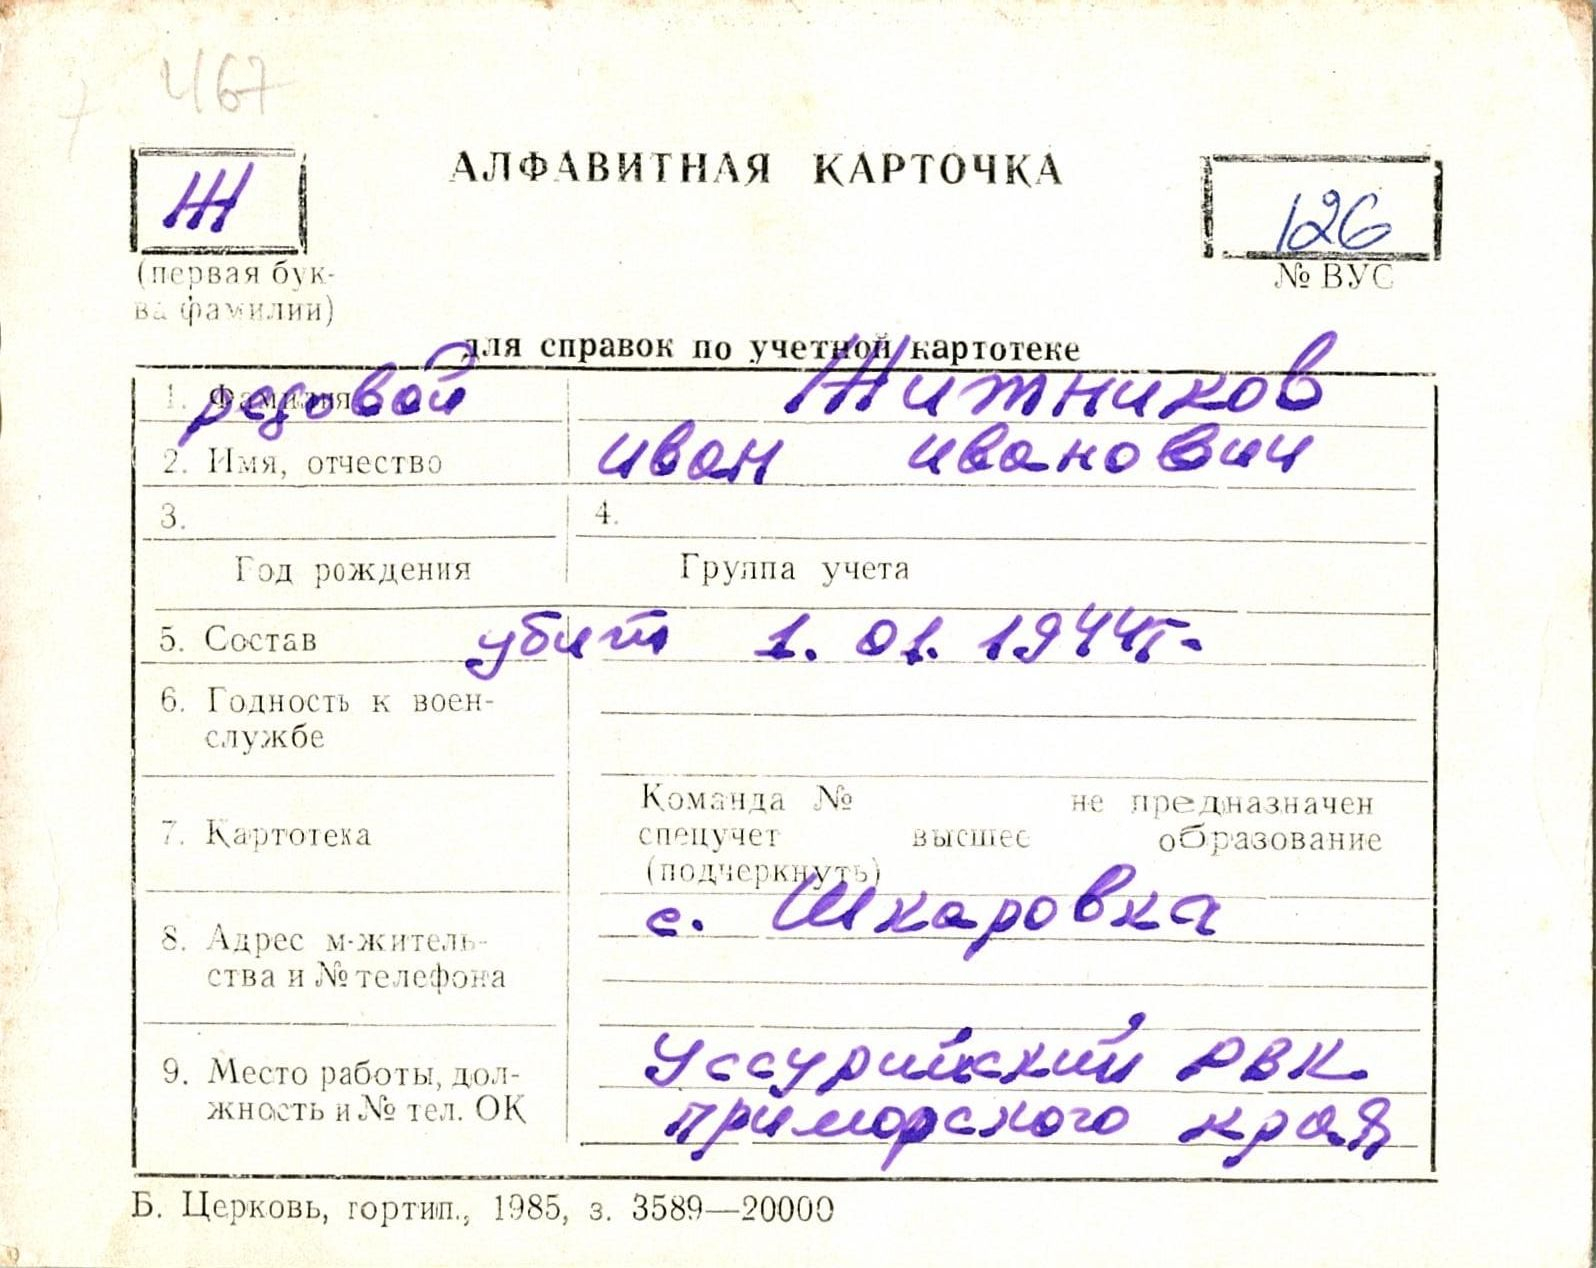 467
Ж
АЛФАВИТНАЯ КАРТОЧКА
126
(первая бук-
ва фамилии)
№ ВУС
для справок по учетной картотеке
1. Фамилия рядовой Житников
2. Имя, отчество иван иванович
3. 4.
Год рождения Группа учета
5. Состав убит 1.01.1944г.
6. Годность к воен-
службе
Команда № не предназначен
7. Картотека спецучет высшее образование
(подчеркнуть)
с. Шкаровка
8. Адрес м-житель-
ства и № телефона
Уссурийский РВК
9. Место работы, дол-
жность и № тел. ОК приморского края
Б. Церковь, гортип., 1985, з. 3589—20000